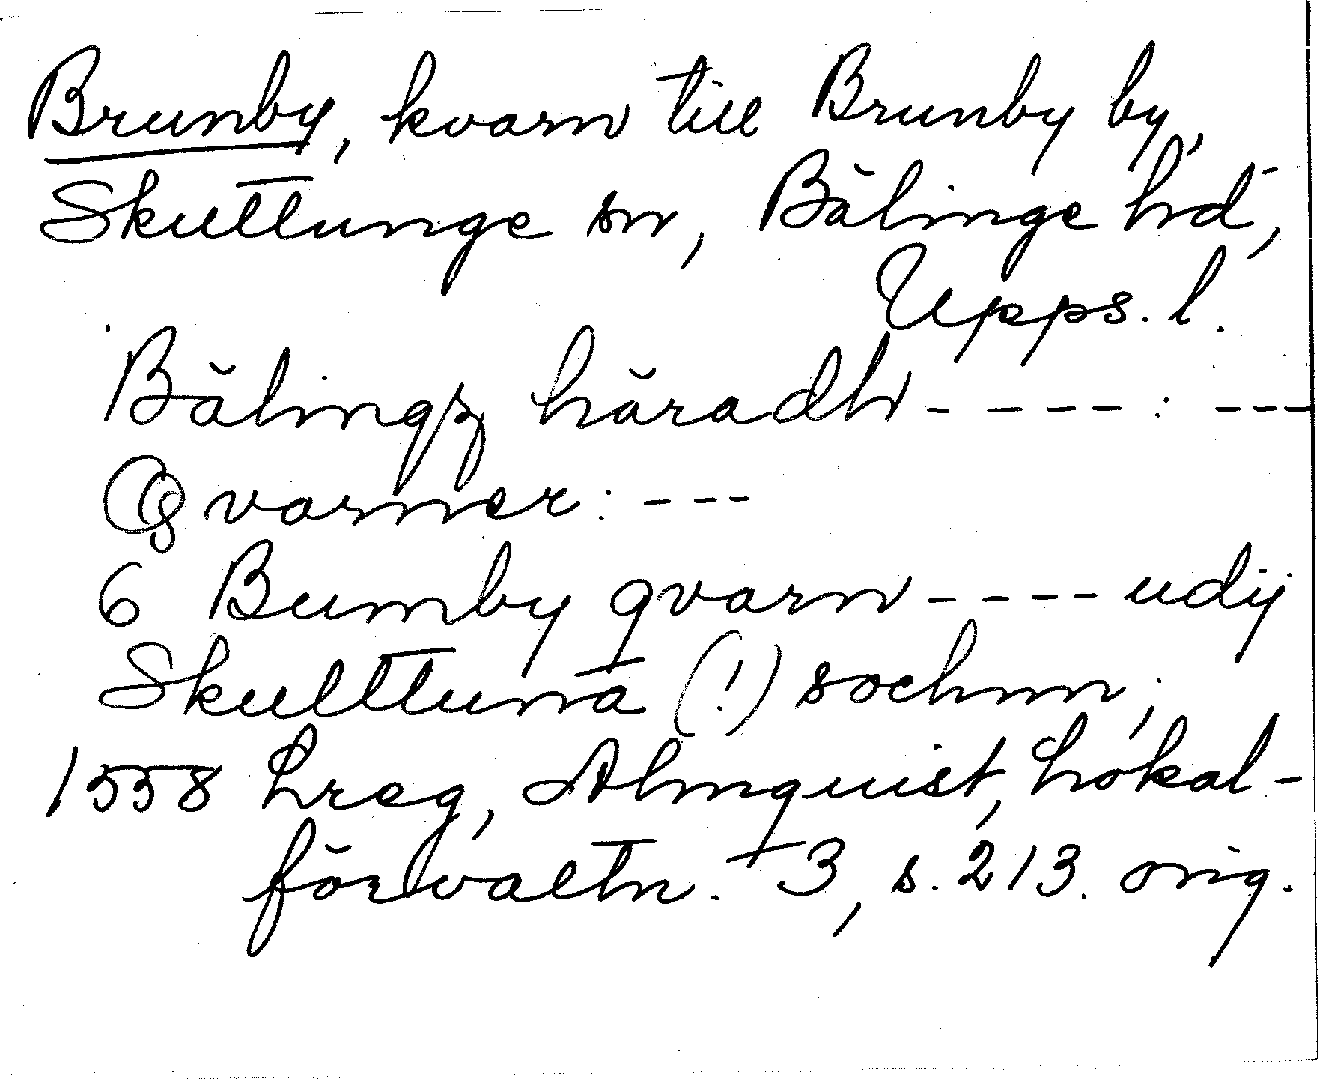 Brunby, kvarn till Brunby by,
Skuttunge sn, Bälinge hd,
Upps. l.
Bälingz häradh - - - - : - - -
Qvarner: - - -
6 Bumby qvarn - - - - udij
Skulttuna (!) sochnn;
1558 Lreg, Almquist, Lokal-
förvaltn. 3, s. 213. orig.